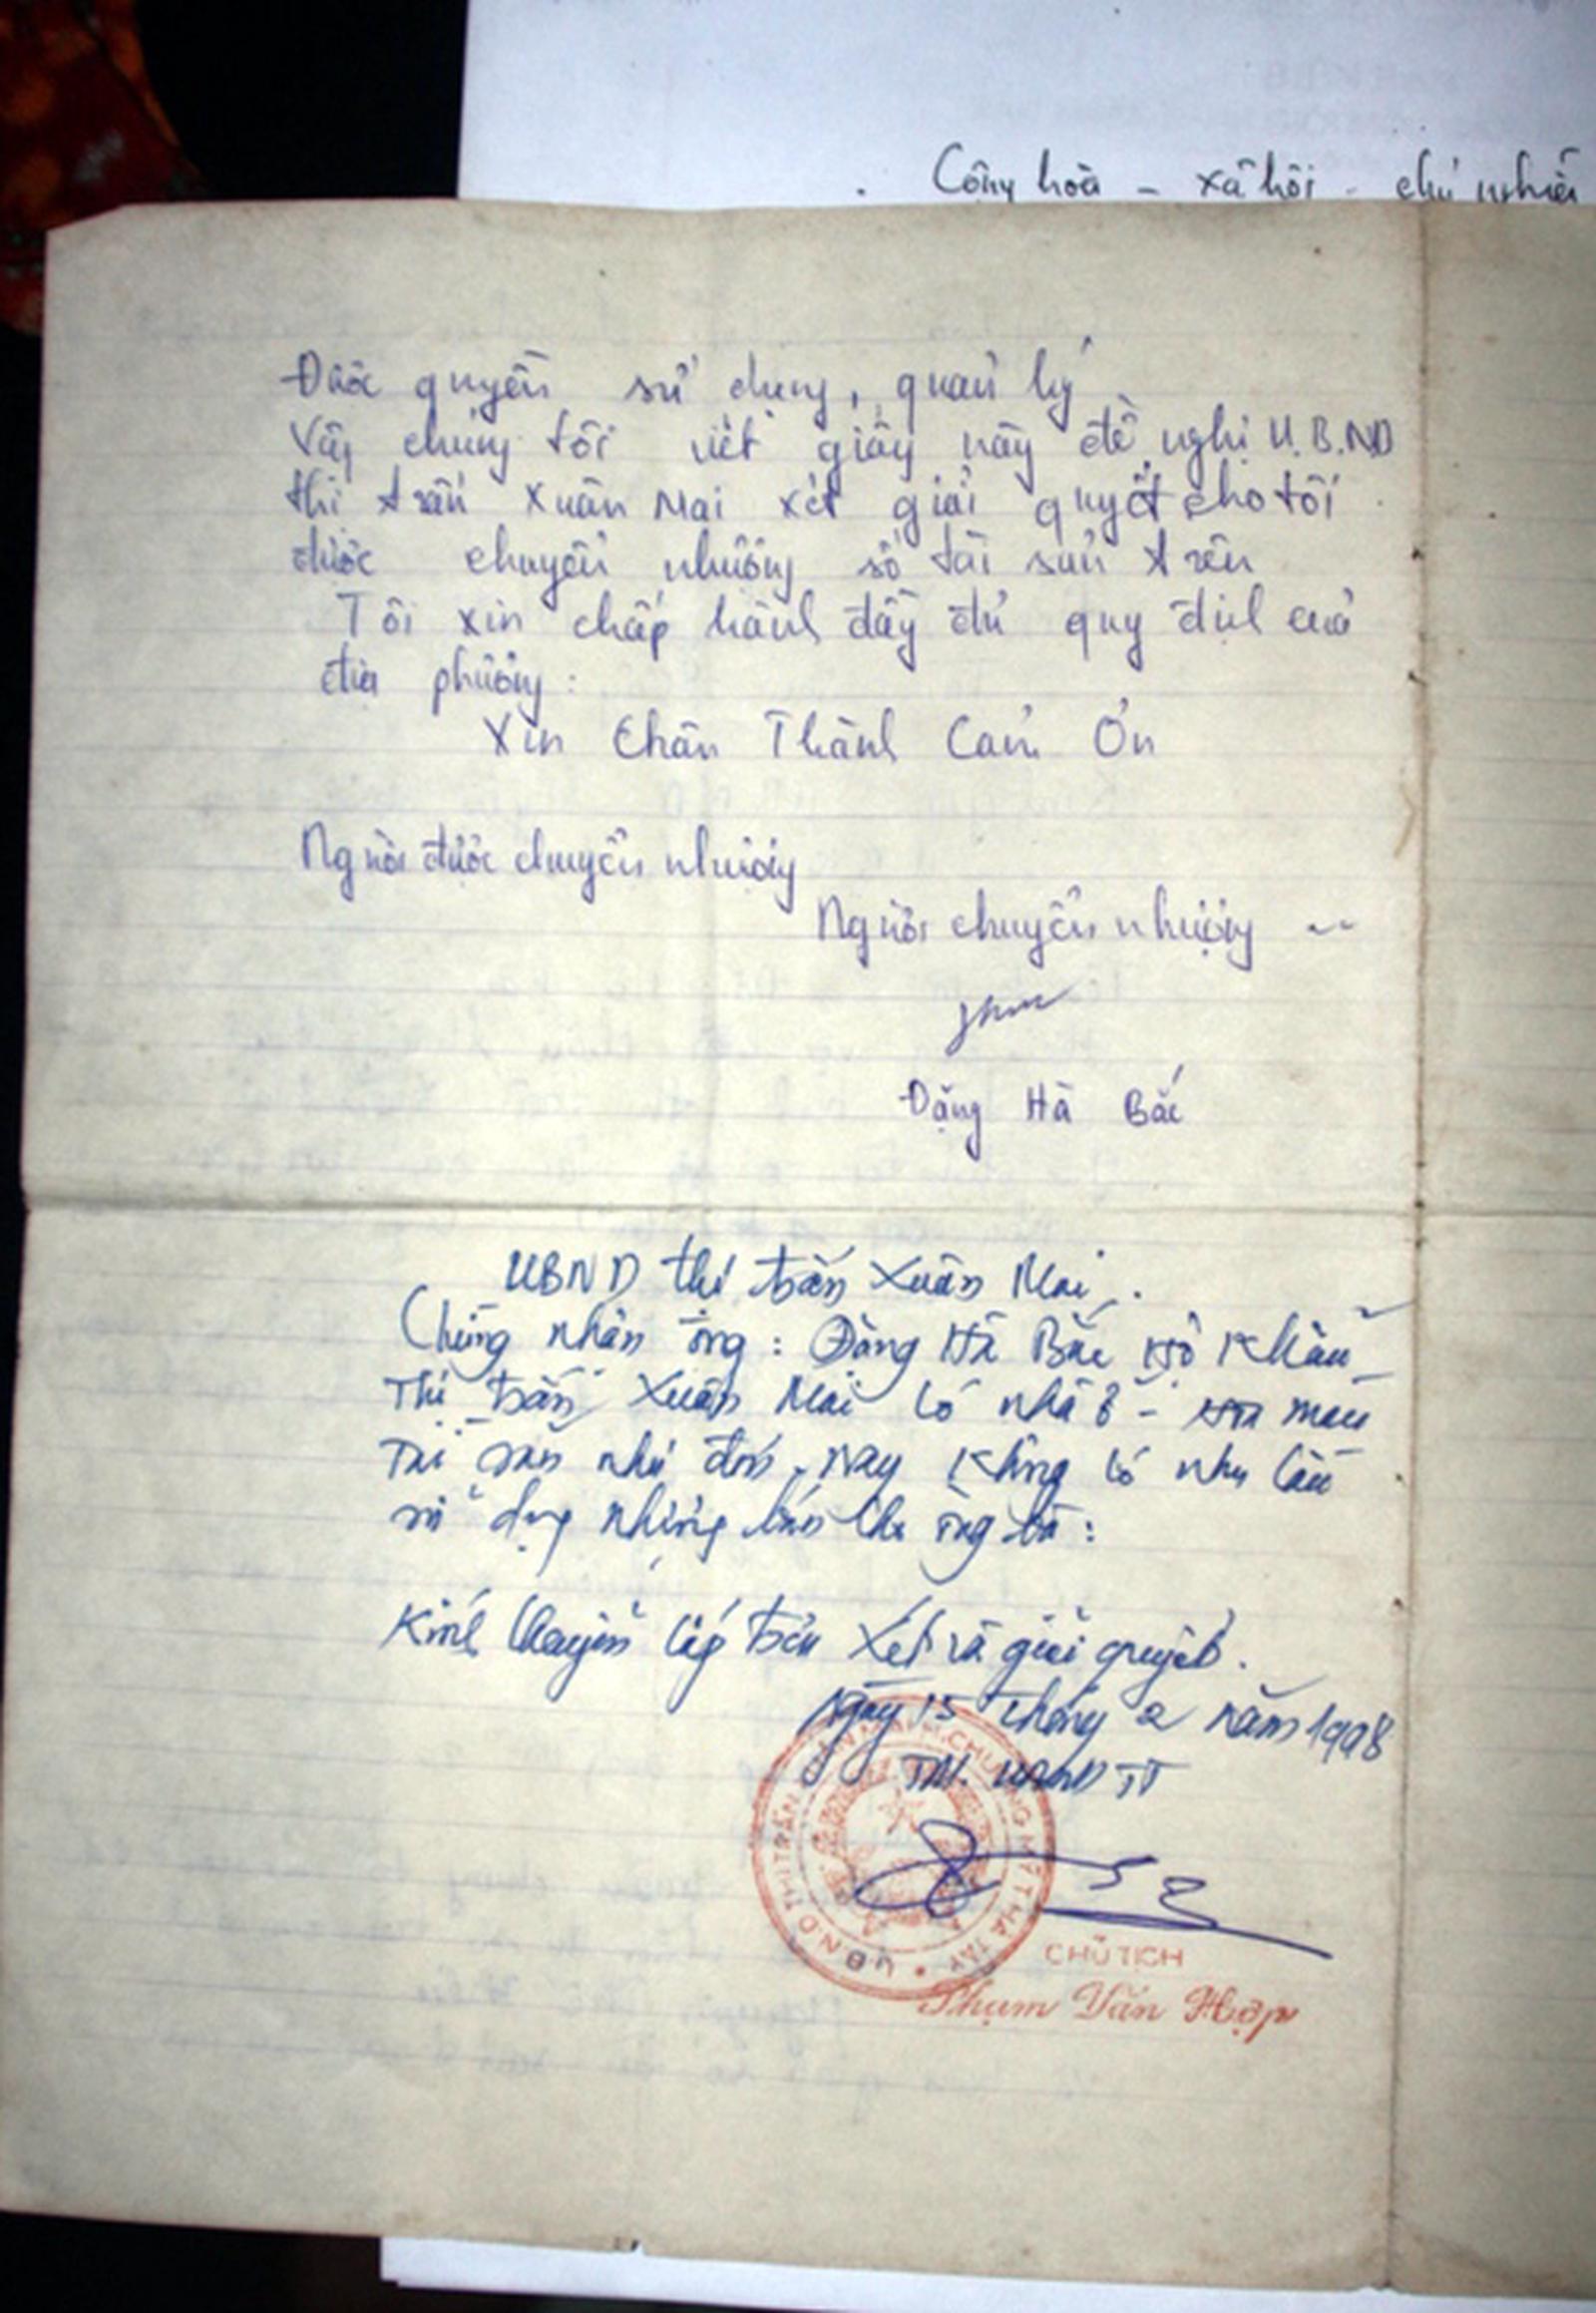 Công hòa - xã hôi - chủ nghĩa
Được quyền sử dụng, quản lý
Vậy chúng tôi viết giấy này đề nghị U.B.ND
thi trấn Xuân Mai xét giải quyết cho tôi
được chuyển nhượng số tài sản trên
Tôi xin chấp hành đầy đủ quy định của
địa phương:
Xin Chân Thành Cảm Ơn
Người được chuyển nhượng
Người chuyển nhượng
Đặng Hà Bắc
UBND thị trấn Xuân Mai.
Chứng nhận ông: Đặng Hà Bắc Hộ Khẩu
Thị trấn Xuân Mai Có nhà ở - Hoa màu
Tài sản như đơn, Nay Không Có nhu Cầu
sử dụng nhượng bán Cho ông bà:
Kính Chuyển Cấp trên Xét và giải quyết.
Ngày 15 tháng 2 năm 1998
TM. UBND TT
U.B.N.D THỊ TRẤN XUÂN MAI H. CHƯƠNG MỸ T. HÀ TÂY
CHỦ TỊCH
Phạm Văn Hợp